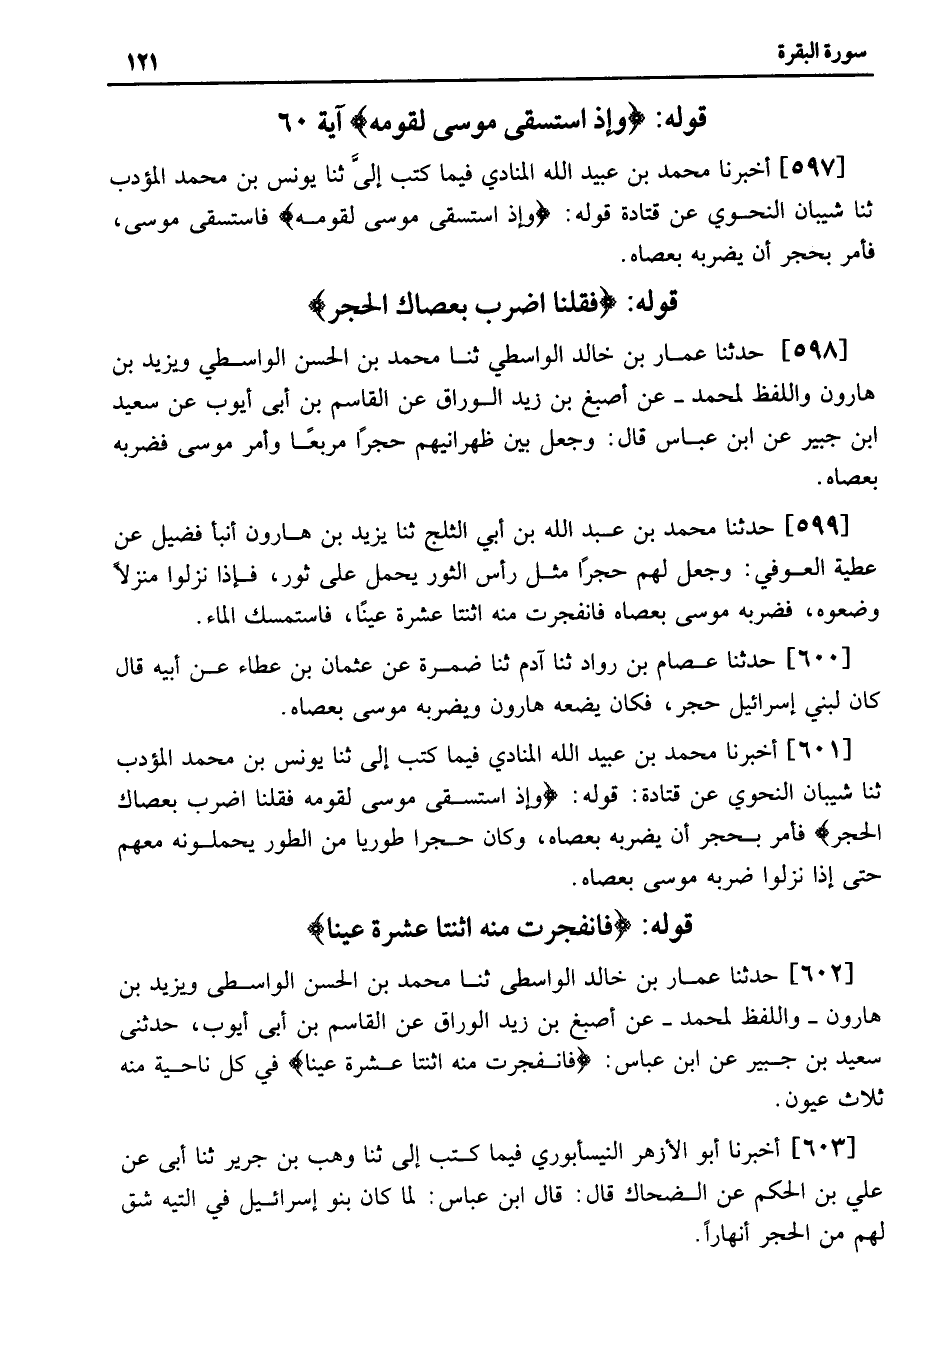 سورة البقرة ١٢١
قوله: ﴿وإذ استسقى موسى لقومه﴾ آية ٦٠
[٥٩٧] أخبرنا محمد بن عبيد الله المنادي فيما كتب إلىَّ ثنا يونس بن محمد المؤدب
ثنا شيبان النحوي عن قتادة قوله: ﴿وإذ استسقى موسى لقومه﴾ فاستسقى موسى،
فأمر بحجر أن يضربه بعصاه.
قوله: ﴿فقلنا اضرب بعصاك الحجر﴾
[٥٩٨] حدثنا عمار بن خالد الواسطي ثنا محمد بن الحسن الواسطي ويزيد بن
هارون واللفظ لمحمد ـ عن أصبغ بن زيد الوراق عن القاسم بن أبى أيوب عن سعيد
ابن جبير عن ابن عباس قال: وجعل بين ظهرانيهم حجرًا مربعًا وأمر موسى فضربه
بعصاه.
[٥٩٩] حدثنا محمد بن عبد الله بن أبي الثلج ثنا يزيد بن هارون أنبأ فضيل عن
عطية العوفي: وجعل لهم حجرًا مثل رأس الثور يحمل على ثور، فإذا نزلوا منزلاً
وضعوه، فضربه موسى بعصاه فانفجرت منه اثنتا عشرة عينًا، فاستمسك الماء.
[٦٠٠] حدثنا عصام بن رواد ثنا آدم ثنا ضمرة عن عثمان بن عطاء عن أبيه قال
كان لبني إسرائيل حجر، فكان يضعه هارون ويضربه موسى بعصاه.
[٦٠١] أخبرنا محمد بن عبيد الله المنادي فيما كتب إلى ثنا يونس بن محمد المؤدب
ثنا شيبان النحوي عن قتادة: قوله: ﴿وإذ استسقى موسى لقومه فقلنا اضرب بعصاك
الحجر﴾ فأمر بحجر أن يضربه بعصاه، وكان حجرا طوريا من الطور يحملونه معهم
حتى إذا نزلوا ضربه موسى بعصاه.
قوله: ﴿فانفجرت منه اثنتا عشرة عينا﴾
[٦٠٢] حدثنا عمار بن خالد الواسطى ثنا محمد بن الحسن الواسطى ويزيد بن
هارون ـ واللفظ لمحمد ـ عن أصبغ بن زيد الوراق عن القاسم بن أبى أيوب، حدثنى
سعيد بن جبير عن ابن عباس: ﴿فانفجرت منه اثنتا عشرة عينا﴾ في كل ناحية منه
ثلاث عيون.
[٦٠٣] أخبرنا أبو الأزهر النيسأبوري فيما كتب إلى ثنا وهب بن جرير ثنا أبى عن
علي بن الحكم عن الضحاك قال: قال ابن عباس: لما كان بنو إسرائيل في التيه شق
لهم من الحجر أنهاراً.